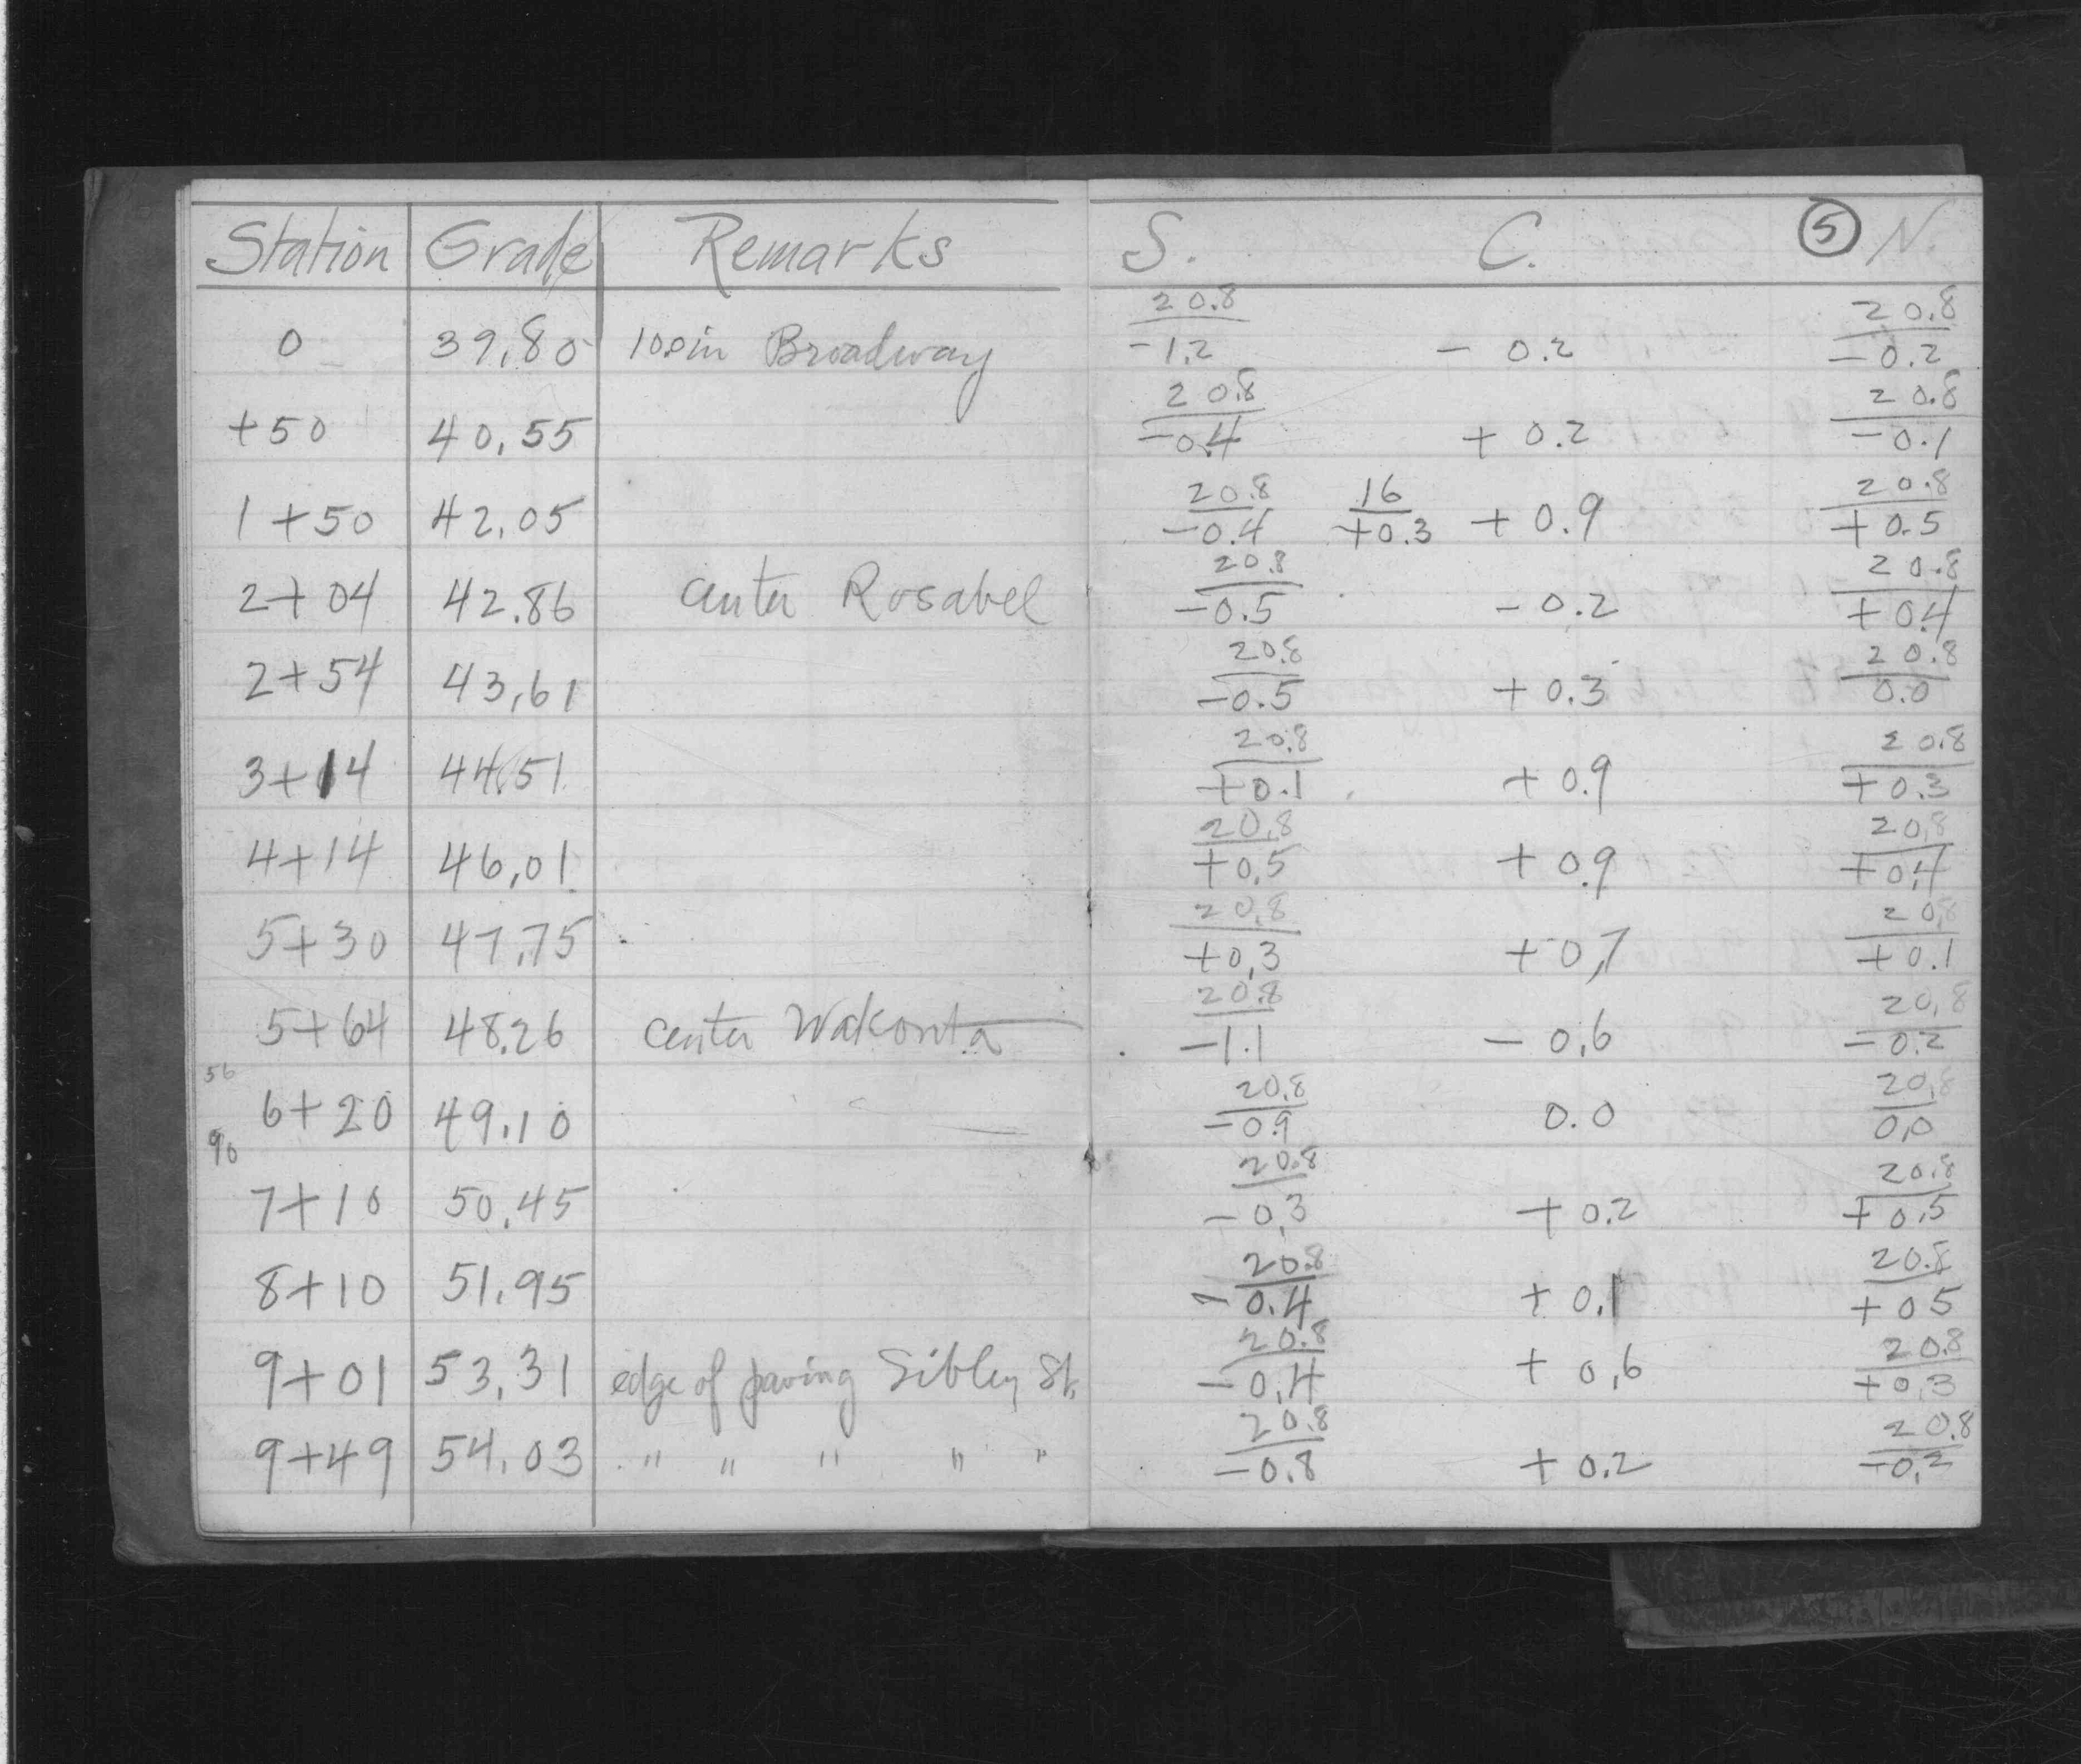 Station Grade Remarks S. C. 5 N.
20.8 20.8
0 39.80 in Broadway -1.2 - 0.2 -0.2
20.8 20.8
+50 40.55 -0.4 + 0.2 -0.1
20.8 16 20.8
1+50 42.05 -0.4 +0.3 + 0.9 +0.5
20.8 20.8
2+04 42.86 center Rosabel -0.5 - 0.2 +0.4
20.8 20.8
2+54 43.61 -0.5 + 0.3 0.0
20.8 20.8
3+14 44.51 +0.1 + 0.9 +0.3
20.8 20.8
4+14 46.01 +0.5 + 0.9 +0.4
20.8 20.8
5+30 47.75 +0.3 +0.7 +0.1
20.8 20.8
5+64 48.26 center Wakonta -1.1 - 0.6 -0.2
56 20.8 20.8
6+20 49.10 -0.9 0.0 0.0
90 20.8 20.8
7+10 50.45 -0.3 + 0.2 +0.5
20.8 20.8
8+10 51.95 -0.4 + 0.1 +05
20.8 20.8
9+01 53.31 edge of paving Sibley St. -0.4 + 0.6 +0.3
20.8 20.8
9+49 54.03 " " " " " -0.8 + 0.2 -0.2